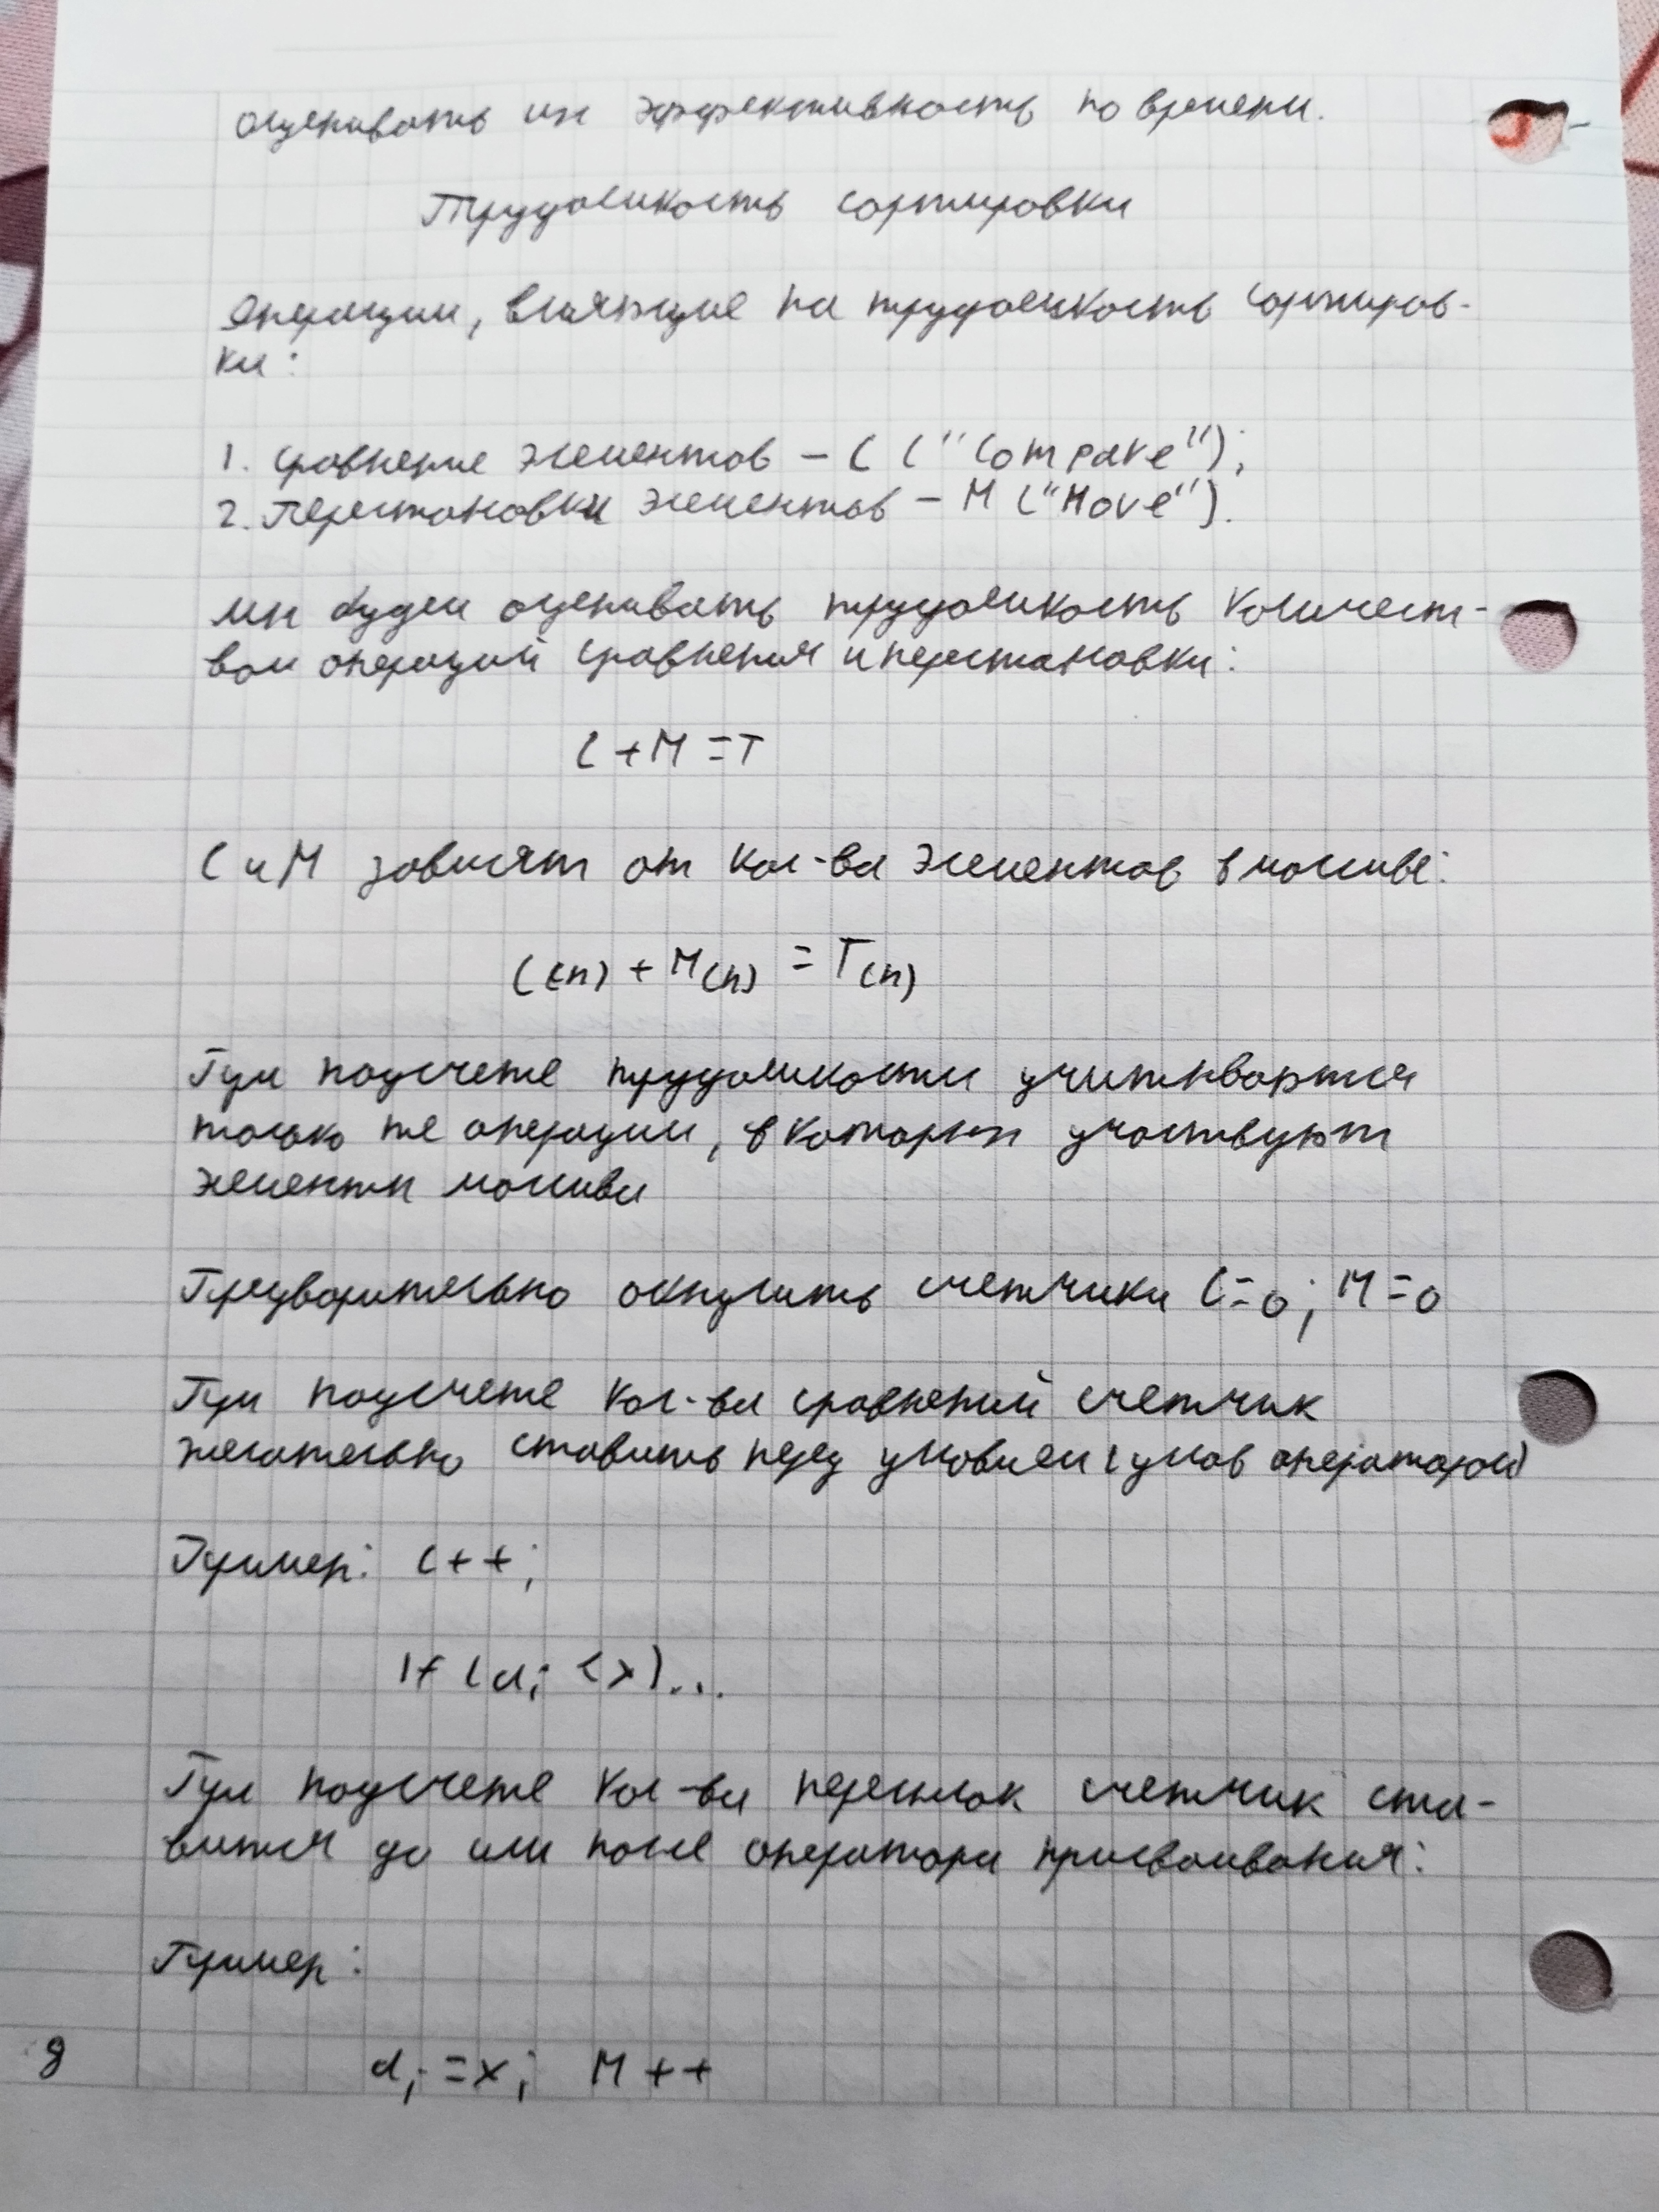 оценивать их эффективность по времени.
Трудоемкость сортировки
Операции, влияющие на трудоемкость сортиров-
ки:
1. Сравнение элементов – C ("Compare");
2. Перестановки элементов – M ("Move").
Мы будем оценивать трудоемкость количест-
вом операций сравнения и перестановки:
C + M = T
C и M зависят от кол-ва элементов в массиве:
C(n) + M(n) = T(n)
При подсчете трудоемкости учитываются
только те операции, в которых участвуют
элементы массива
Предварительно обнулить счетчики C=0; M=0
При подсчете кол-ва сравнений счетчик
желательно ставить перед условием (услов оператором)
Пример: C++;
If (ai < x)...
При подсчете кол-ва пересылок счетчик ста-
вится до или после оператора присваивания:
Пример:
ai = x; M++
8